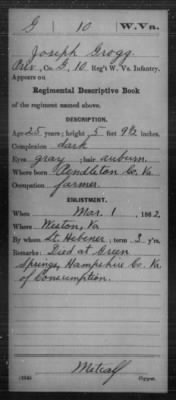 G 10 W.Va.
Joseph Grogg
Priv., Co. G, 10 Reg't W. Va. Infantry.
Appears on
Regimental Descriptive Book
of the regiment named above.
DESCRIPTION.
Age 25 years; height 5 feet 9½ inches.
Complexion dark
Eyes gray; hair auburn.
Where born Pendleton Co. Va
Occupation farmer.
ENLISTMENT.
When Mar. 1, 1862.
Where Weston, Va
By whom Lt. Hebener; term 3 y'rs.
Remarks: Died at Green
Springs, Hampshire Co. Va.
of Consumption.
Metcalf
Copyist.